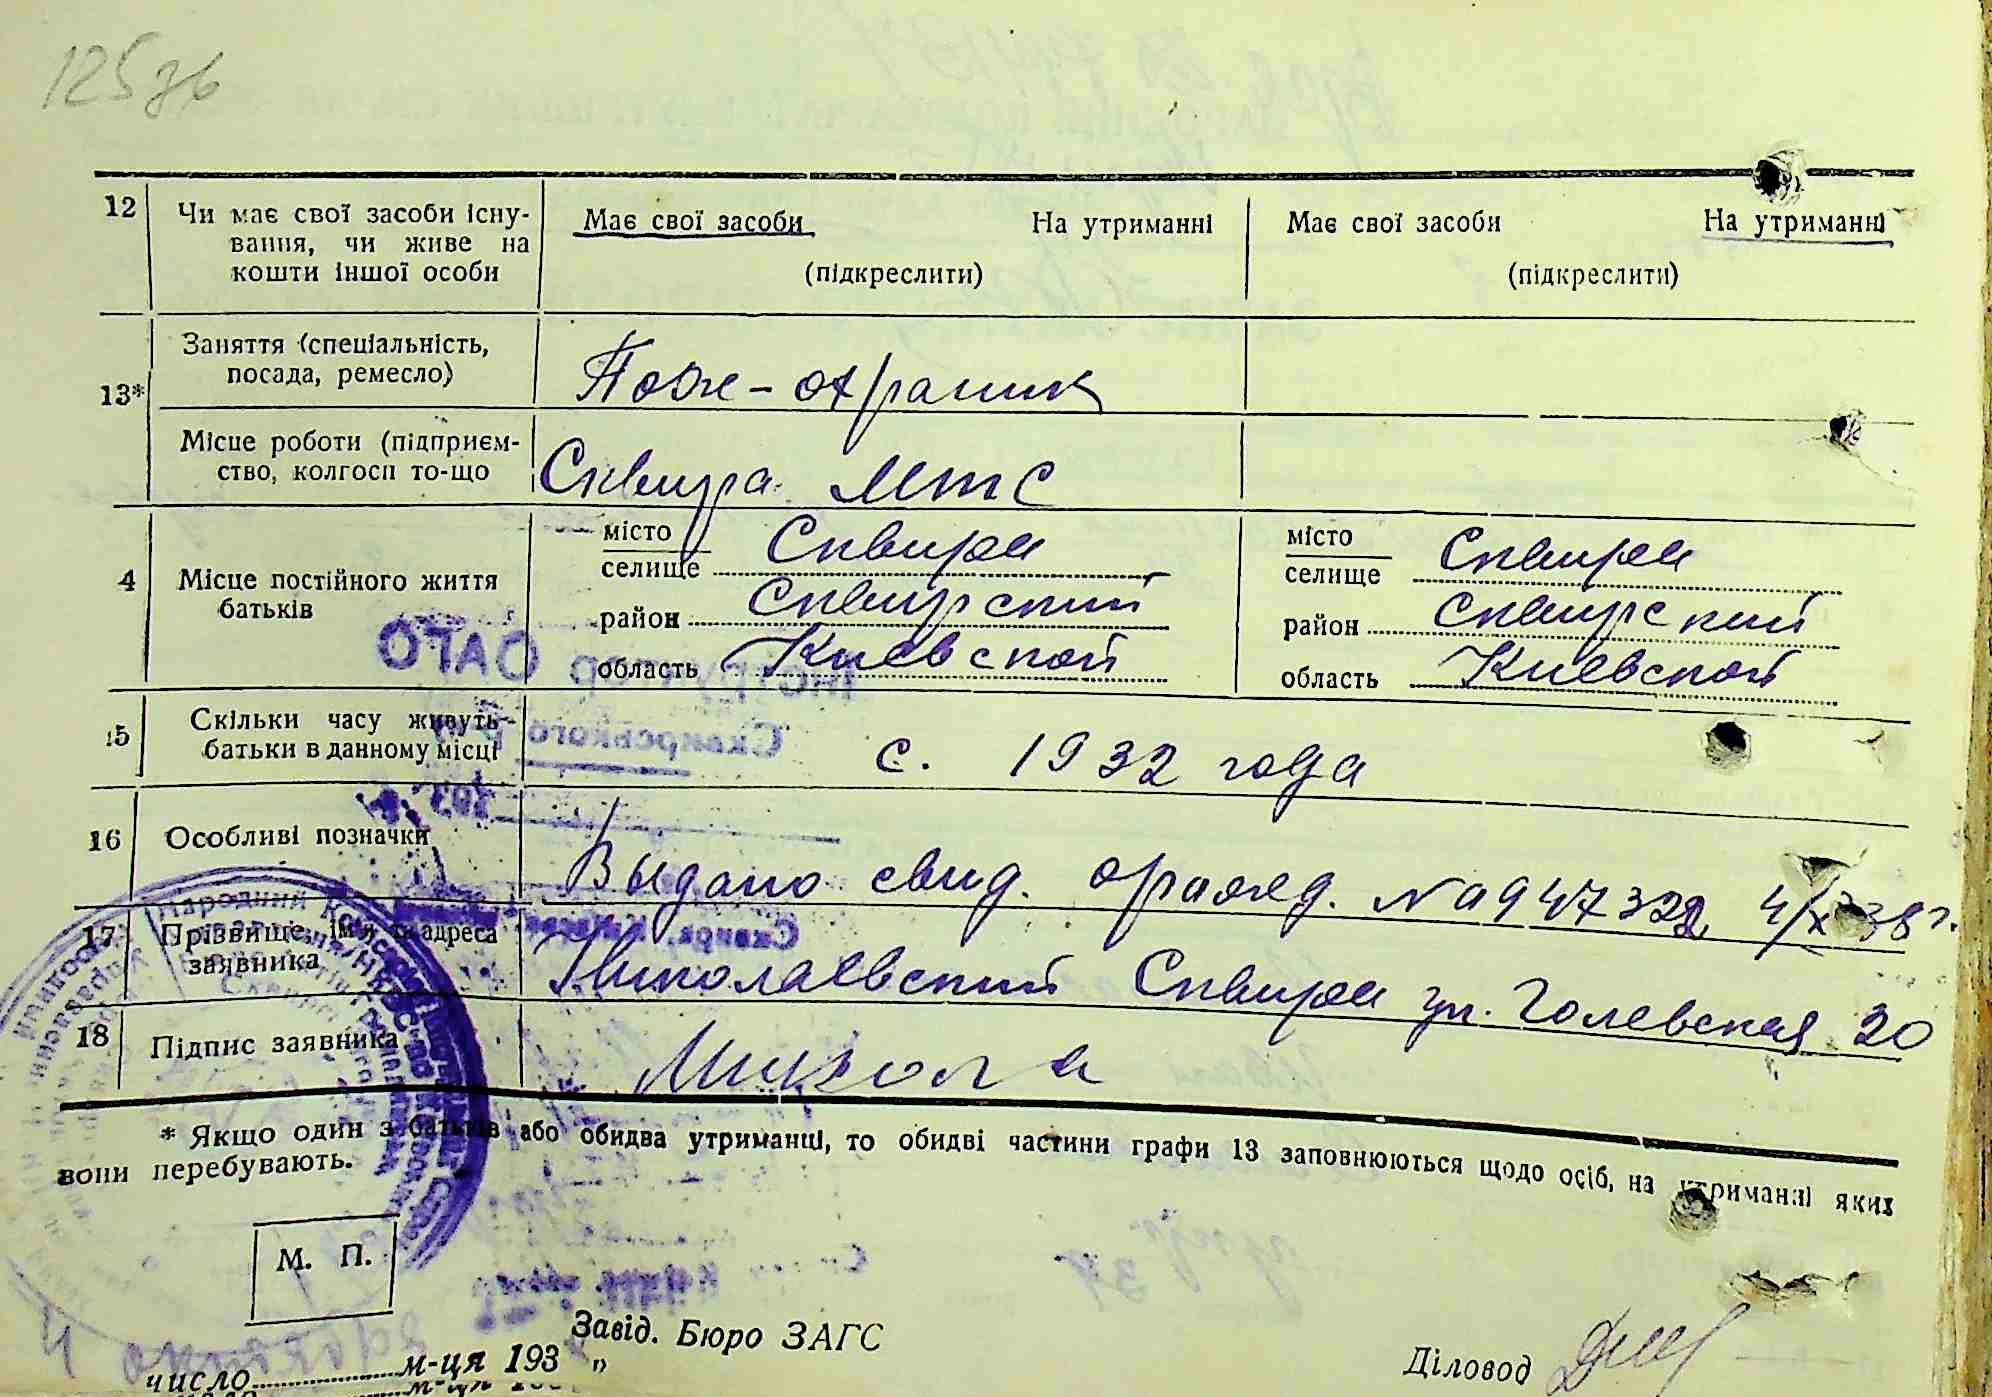 12576
12 Чи має свої засоби існу- Має свої засоби На утриманні Має свої засоби На утриманні
вання, чи живе на
кошти іншої особи (підкреслити) (підкреслити)
Заняття (спеціальність,
посада, ремесло) Пож-охраник
13*
Місце роботи (підприєм-
ство, колгосп то-що Сквира МТС
місто Сквира місто Сквира
селище селище
4 Місце постійного життя
батьків район Сквирский район Сквирский
область Киевской область Киевской
15 Скільки часу живуть
батьки в данному місці с. 1932 года
16 Особливі позначки Выдано свид. о рожд. № 947322 4/X 38 г.
17 Прізвище, ім'я та адреса
заявника Николаевский Сквира ул. Голевская 20
18 Підпис заявника Микола
* Якщо один з батьків або обидва утриманці, то обидві частини графи 13 заповнюються щодо осіб, на утриманні яких
вони перебувають.
М. П.
Завід. Бюро ЗАГС
число м-ця 193 „
Діловод